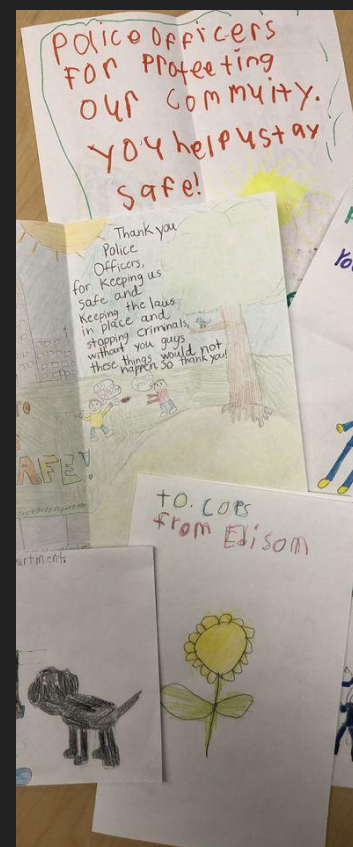 Police officers
For Proteeting
our commuity.
you help us stay
safe!
Thank you
Police
Officers,
for keeping us
safe and
keeping the laws
in place and
stopping criminals,
without you guys
these things would not
happen so thank you!
AFE!
to. cops
from Edison
artment.